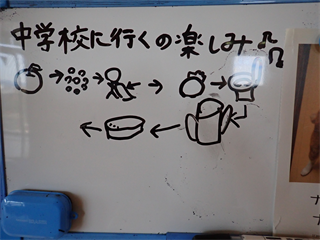 中学校に行くの楽しみ♫